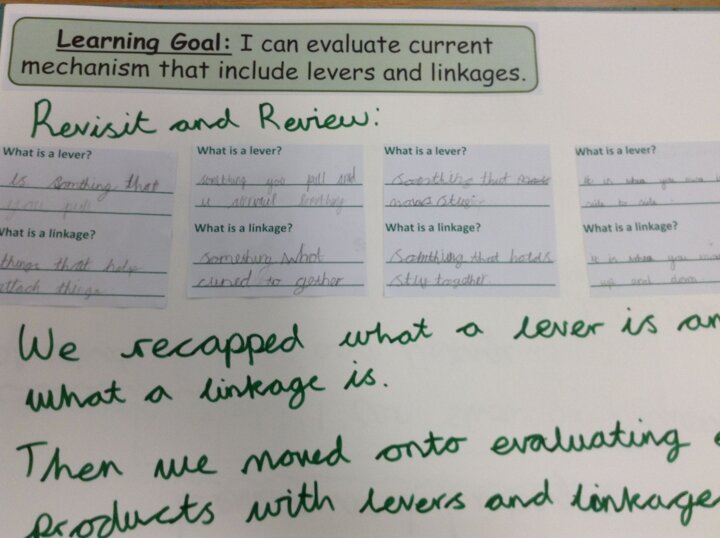 Learning Goal: I can evaluate current
mechanism that include levers and linkages.
Revisit and Review:
What is a lever?
is somthing that
you pull
What is a linkage?
things that help
attach things
What is a lever?
something you pull and
What is a linkage?
something what
to gether
What is a lever?
something that
moves
What is a linkage?
something that holds
together
What is a lever?
it is when you move
side to side
What is a linkage?
it is when you
up and down
We recapped what a lever is an
what a linkage is.
Then we moved onto evaluating
products with levers and linkage